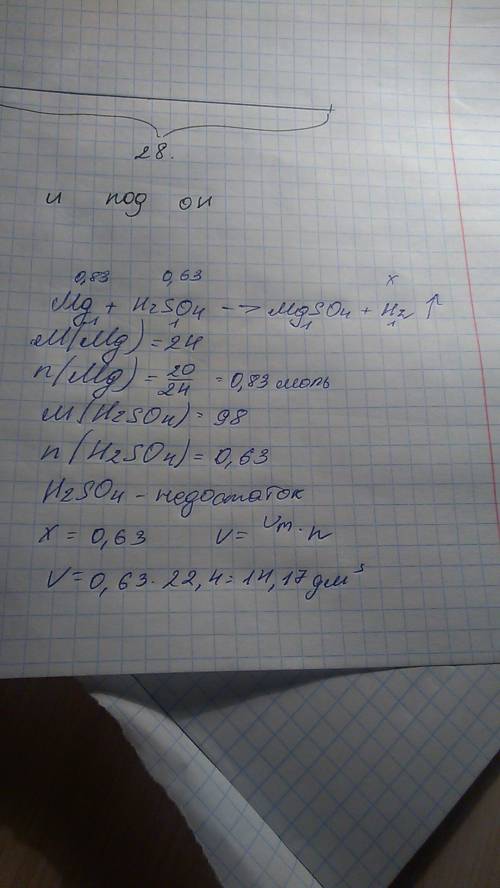 28.
и под он
0,83 0,63 x
Mg + H2SO4 -> MgSO4 + H2 ↑
1 1 1 1
M(Mg) = 24
n(Mg) = 20/24 = 0,83 моль
M(H2SO4) = 98
n(H2SO4) = 0,63
H2SO4 - недостаток
x = 0,63 V = Vm · n
V = 0,63 · 22,4 = 14,17 дм³